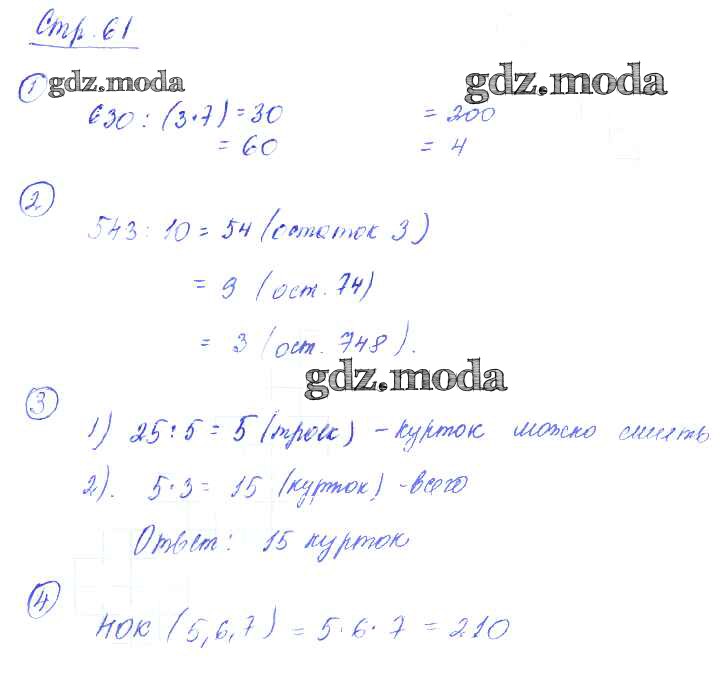 Стр. 61
1 gdz.moda gdz.moda
630 : (3·7) = 30 = 200
= 60 = 4
2
543 : 10 = 54 (остаток 3)
= 9 (ост. 74)
= 3 (ост. 748).
gdz.moda
3
1) 25 : 5 = 5 (троек) – курток можно сшить
2). 5·3 = 15 (курток) – всего
Ответ: 15 курток
4
НОК (5,6,7) = 5·6·7 = 210